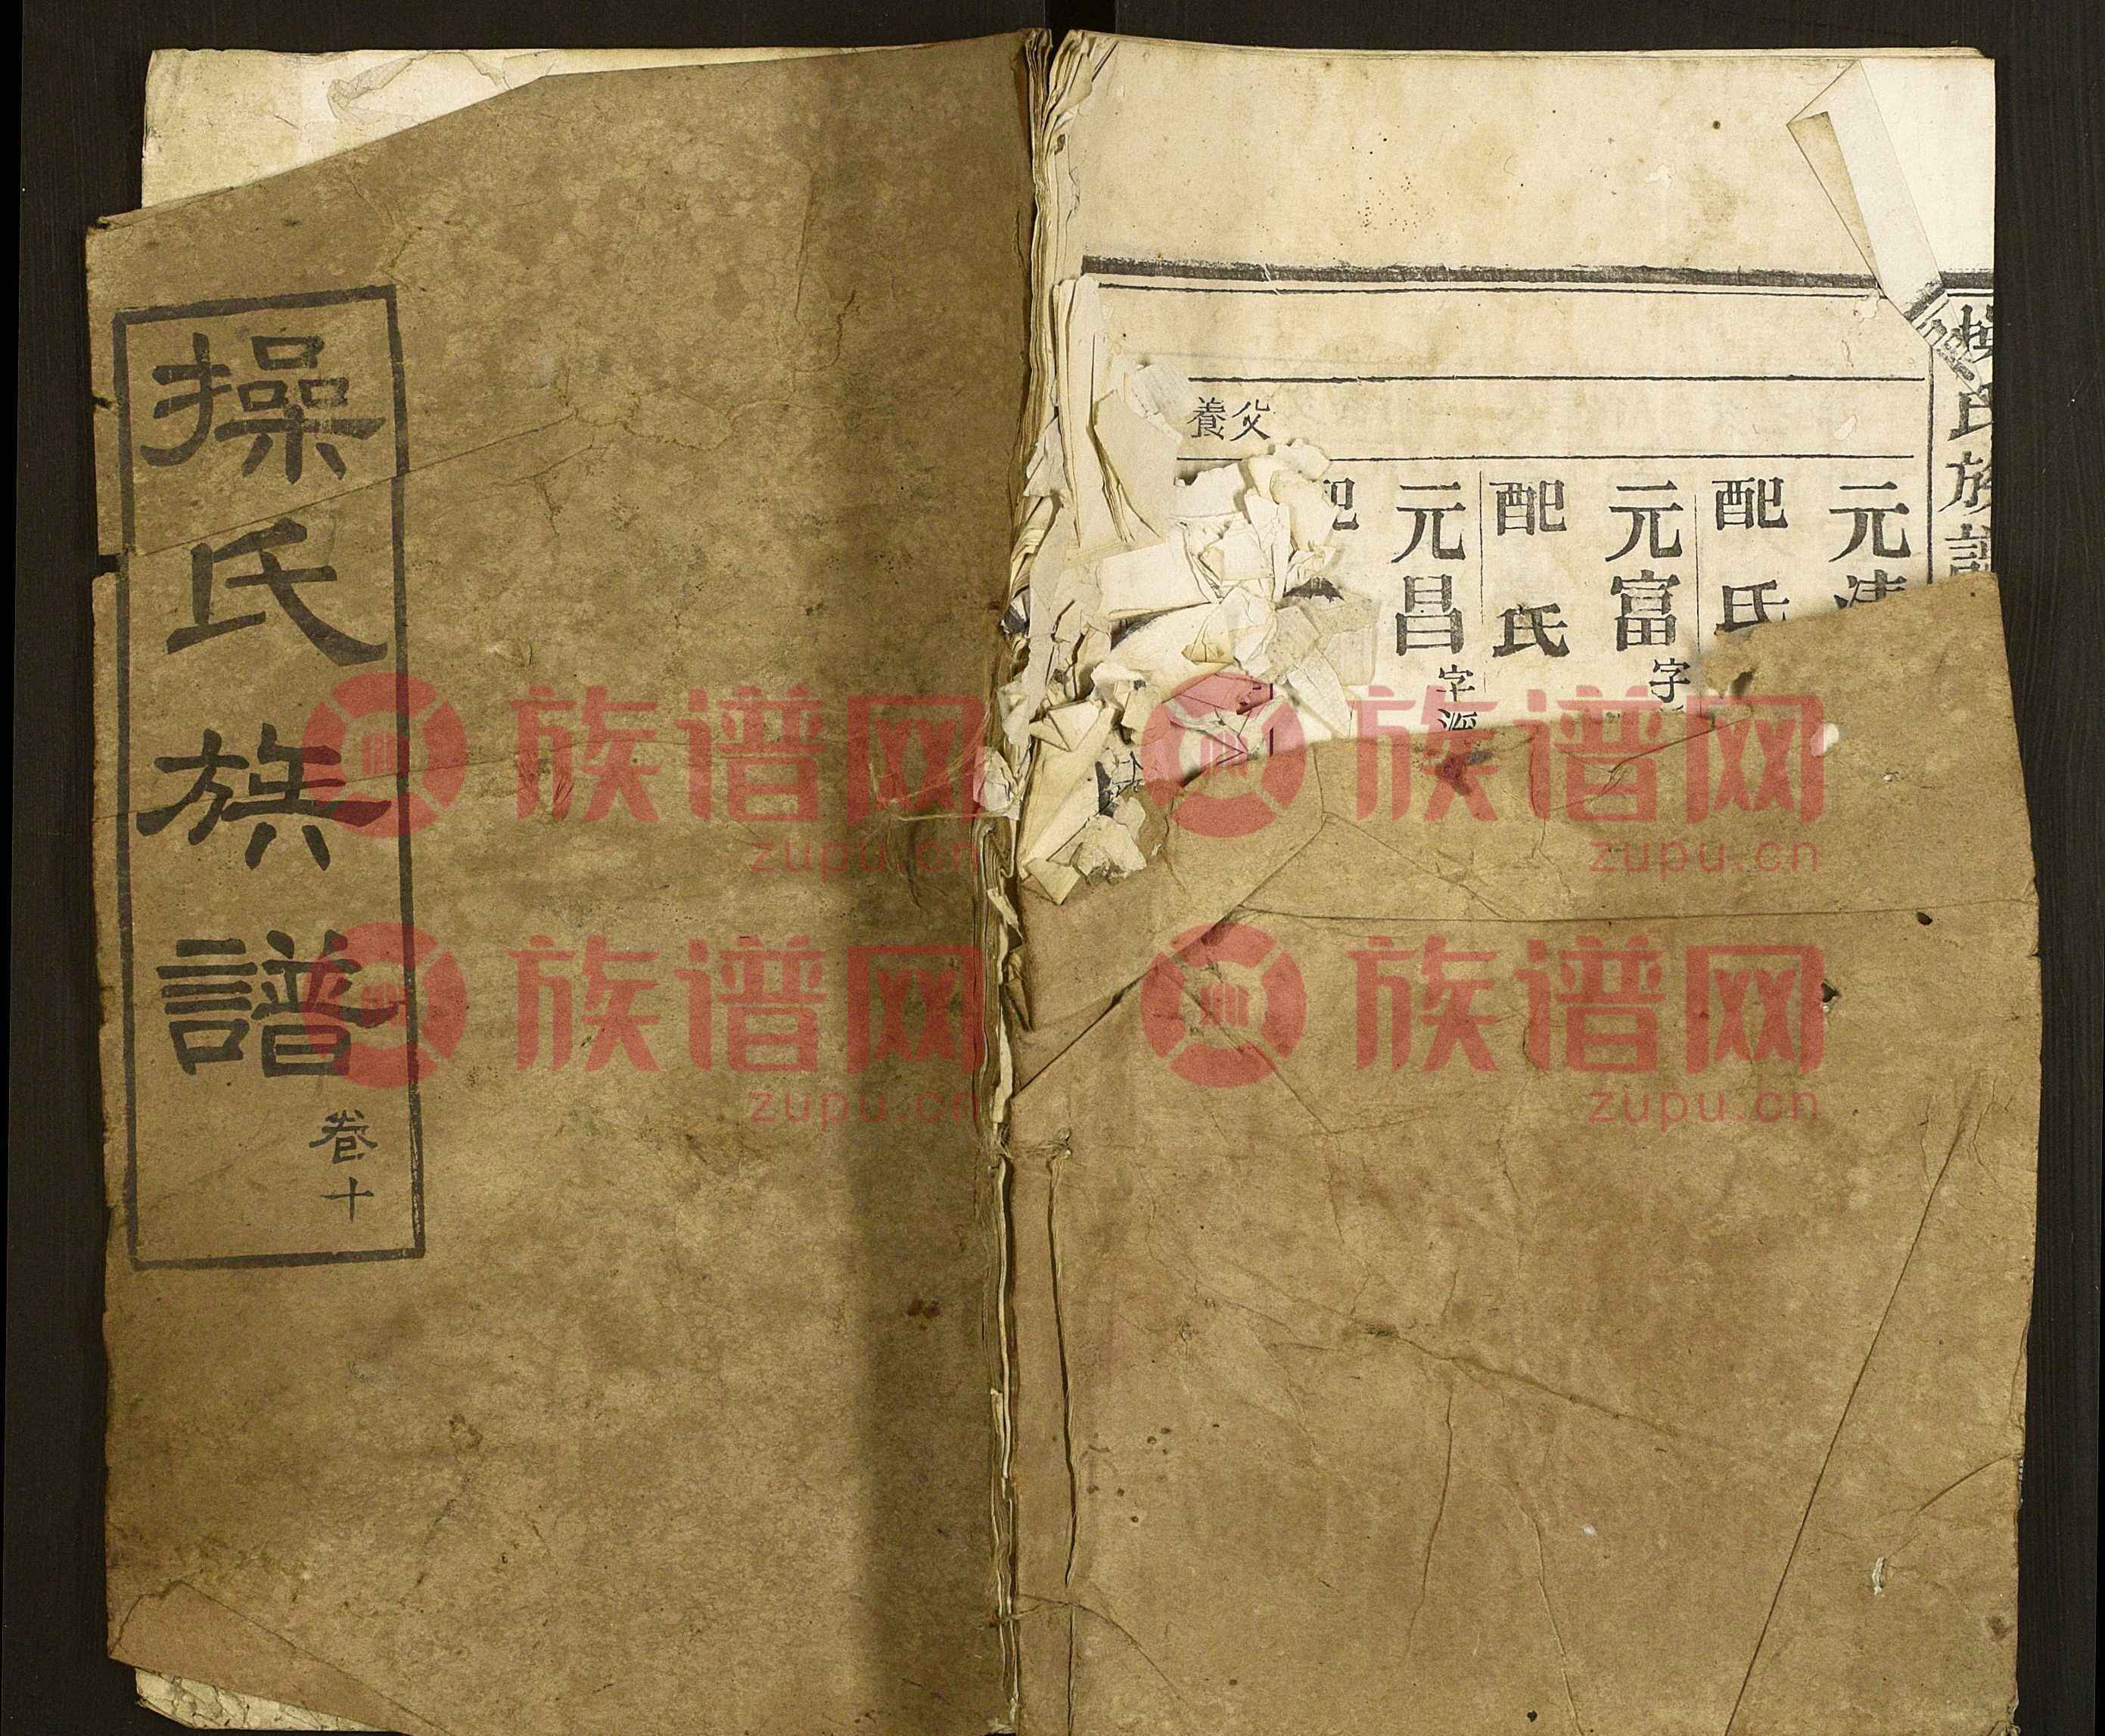 操氏族譜
卷十
氏族
元
配氏
元富字
配氏
元昌字派
父養
族谱网
zupu.cn
族谱网
zupu.cn
族谱网
zupu.cn
族谱网
zupu.cn